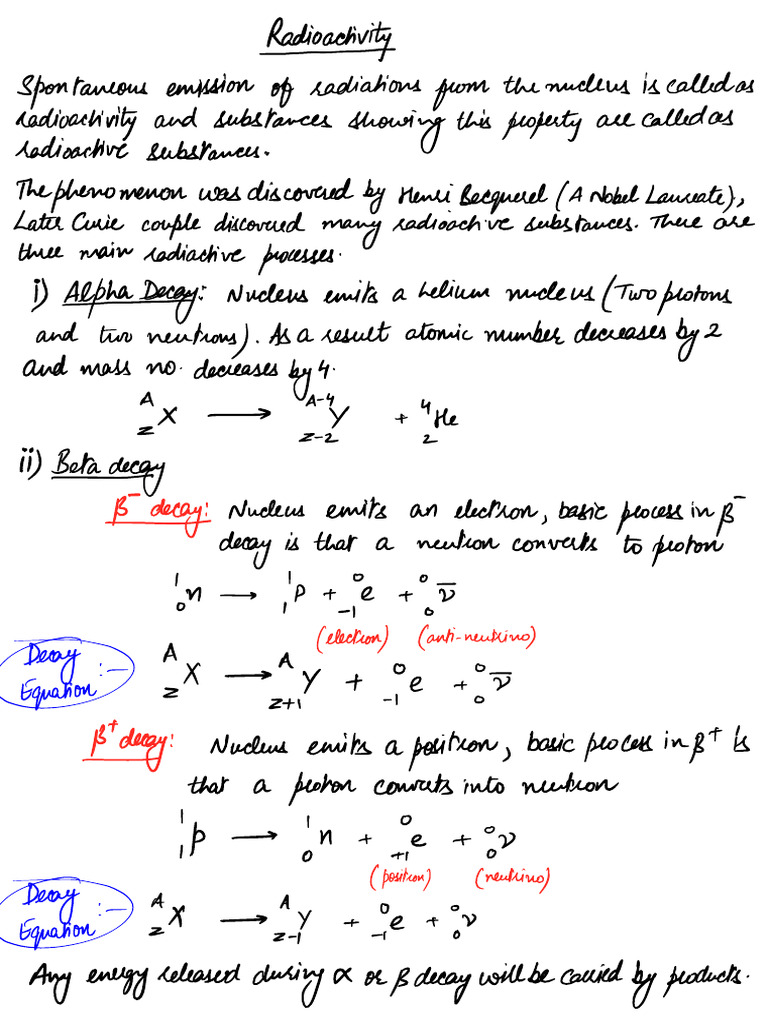 Radioactivity
Spontaneous emission of radiations from the nucleus is called as
radioactivity and substances showing this property are called as
radioactive substances.
The phenomenon was discovered by Henri Becquerel (A Nobel Laureate),
Later Curie couple discovered many radioactive substances. There are
three main radiactive processes.
i) Alpha Decay: Nucleus emits a helium nucleus (Two protons
and two neutrons). As a result atomic number decreases by 2
and mass no. decreases by 4.
ᴬ_Z X ⟶ ᴬ⁻⁴_Z-2 Y + ⁴₂He
ii) Beta decay
β⁻ decay: Nucleus emits an electron, basic process in β⁻
decay is that a neutron converts to proton
¹₀n ⟶ ¹₁p + ⁰₋₁e + ⁰₀ν̅
(electron) (anti-neutrino)
Decay Equation :- ᴬ_Z X ⟶ ᴬ_Z+1 Y + ⁰₋₁e + ⁰₀ν̅
β⁺ decay: Nucleus emits a positron, basic process in β⁺ is
that a proton converts into neutron
¹₁p ⟶ ¹₀n + ⁰₊₁e + ⁰₀ν
(positron) (neutrino)
Decay Equation :- ᴬ_Z X ⟶ ᴬ_Z-1 Y + ⁰₋₁e + ⁰₀ν
Any energy released during α or β decay will be carried by products.